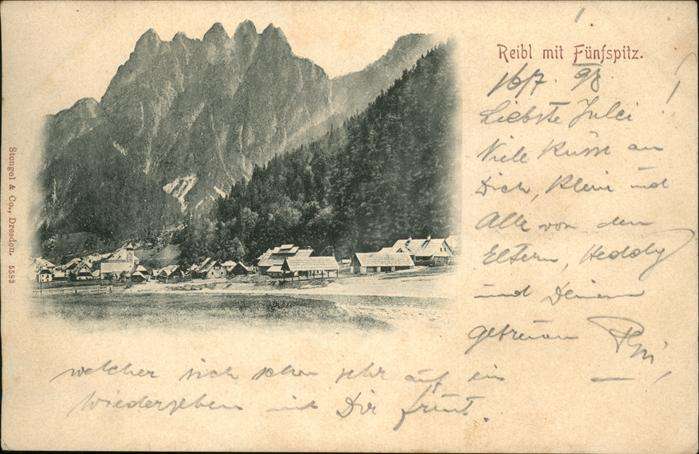 Reibl mit Fünfspitz.
16/7. 98
Liebste Julci!
Viele Küsse an
Dich, Klein und
Alle von den
Eltern, Heddy
und Deinem
getreuen
welcher sich schon sehr auf ein
Wiedersehen mit Dir freut.
Stengel & Co., Dresden. 5583